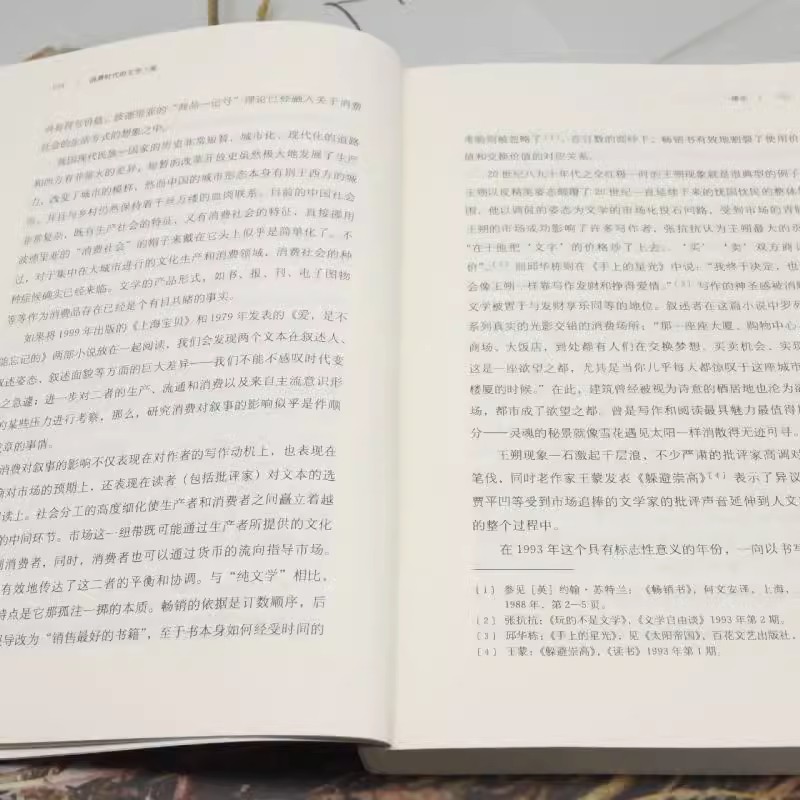 消费时代的文学
尚有符号价值。波德里亚的“商品—记号”理论已经融入关于消费
社会的生活方式的想象之中。
我国现代民族—国家的历史非常短暂，城市化、现代化的道路
和西方有着极大的差异，短暂的改革开放史虽然极大地发展了生产
力，改变了城市的模样，然而中国的城市形态本身有别于西方的城
市，并且与乡村仍然保持着千丝万缕的血肉联系。目前的中国社会
非常复杂，既有生产社会的特征，又有消费社会的特征，直接挪用
波德里亚的“消费社会”的帽子来戴在它头上似乎是简单化了。不
过，对于集中在大城市进行的文化生产和消费领域，消费社会的种
种症候确实已经来临。文学的产品形式，如书、报、刊、电子图物
等等作为消费品存在已经是个有目共睹的事实。
如果将1999年出版的《上海宝贝》和1979年发表的《爱，是不
能忘记的》两部小说放在一起阅读，我们会发现两个文本在叙述人、
叙述姿态、叙述面貌等方面的巨大差异——我们不能不感叹时代变
之急遽；进一步对二者的生产、流通和消费以及来自主流意识形
的某些压力进行考察，那么，研究消费对叙事的影响似乎是件顺
成章的事情。
消费对叙事的影响不仅表现在对作者的写作动机上，也表现在
商对市场的预期上，还表现在读者（包括批评家）对文本的选
读上。社会分工的高度细化使生产者和消费者之间矗立着越
的中间环节。市场这一纽带既可能通过生产者所提供的文化
到消费者，同时，消费者也可以通过货币的流向指导市场。
有效地传达了这二者的平衡和协调。与“纯文学”相比，
特点是它那孤注一掷的本质。畅销的依据是订数顺序，后
误导改为“销售最好的书籍”，至于书本身如何经受时间的
考验则被忽略了〔1〕。在订数的面碎下，畅销书有效地割裂了使用价
值和交换价值的对应关系。
20世纪八九十年代之交红极一时的王朔现象就是很典型的例子
王朔以反精英姿态颠覆了20世纪一直延续下来的忧国忧民的整体
围，他以调侃的姿态为文学的市场化投石问路，受到市场的青睐
王朔的市场成功影响了许多写作者，张抗抗认为王朔最大的贡
“在于他把‘文字’的价格炒了上去，‘买’‘卖’双方商议
价”。〔2〕而邱华栋则在《手上的星光》中说：“我终于决定，也
会像王朔一样靠写作发财和挣得爱情。”〔3〕写作的神圣感被消
文学被置于与发财享乐同等的地位。叙述者在这篇小说中罗列
系列真实的光影交错的消费场所：“那一座座大厦、购物中心、
商场、大饭店，到处都有人们在交换梦想、买卖机会、实现
这是一座欲望之都，尤其是当你儿乎每天都惊叹于这座城市
楼厦的时候。”在此，建筑曾经被视为诗意的栖居地也沦为
场，都市成了欲望之都。曾是写作和阅读最具魅力最值得
分——灵魂的秘景就像雪花遇见太阳一样消散得无迹可寻。
王朔现象一石激起千层浪，不少严肃的批评家高调对
笔伐，同时老作家王蒙发表《躲避崇高》〔4〕表示了异议
贾平凹等受到市场追捧的文学家的批评声音延伸到人文
的整个过程中。
在1993年这个具有标志性意义的年份，一向以书写
〔1〕 参见［英］约翰·苏特兰：《畅销书》，何文安译，上海，
1988年，第2—5页。
〔2〕 张抗抗：《玩的不是文学》，《文学自由谈》1993年第2期。
〔3〕 邱华栋：《手上的星光》，见《太阳帝国》，百花文艺出版社，
〔4〕 王蒙：《躲避崇高》，《读书》1993年第1期。